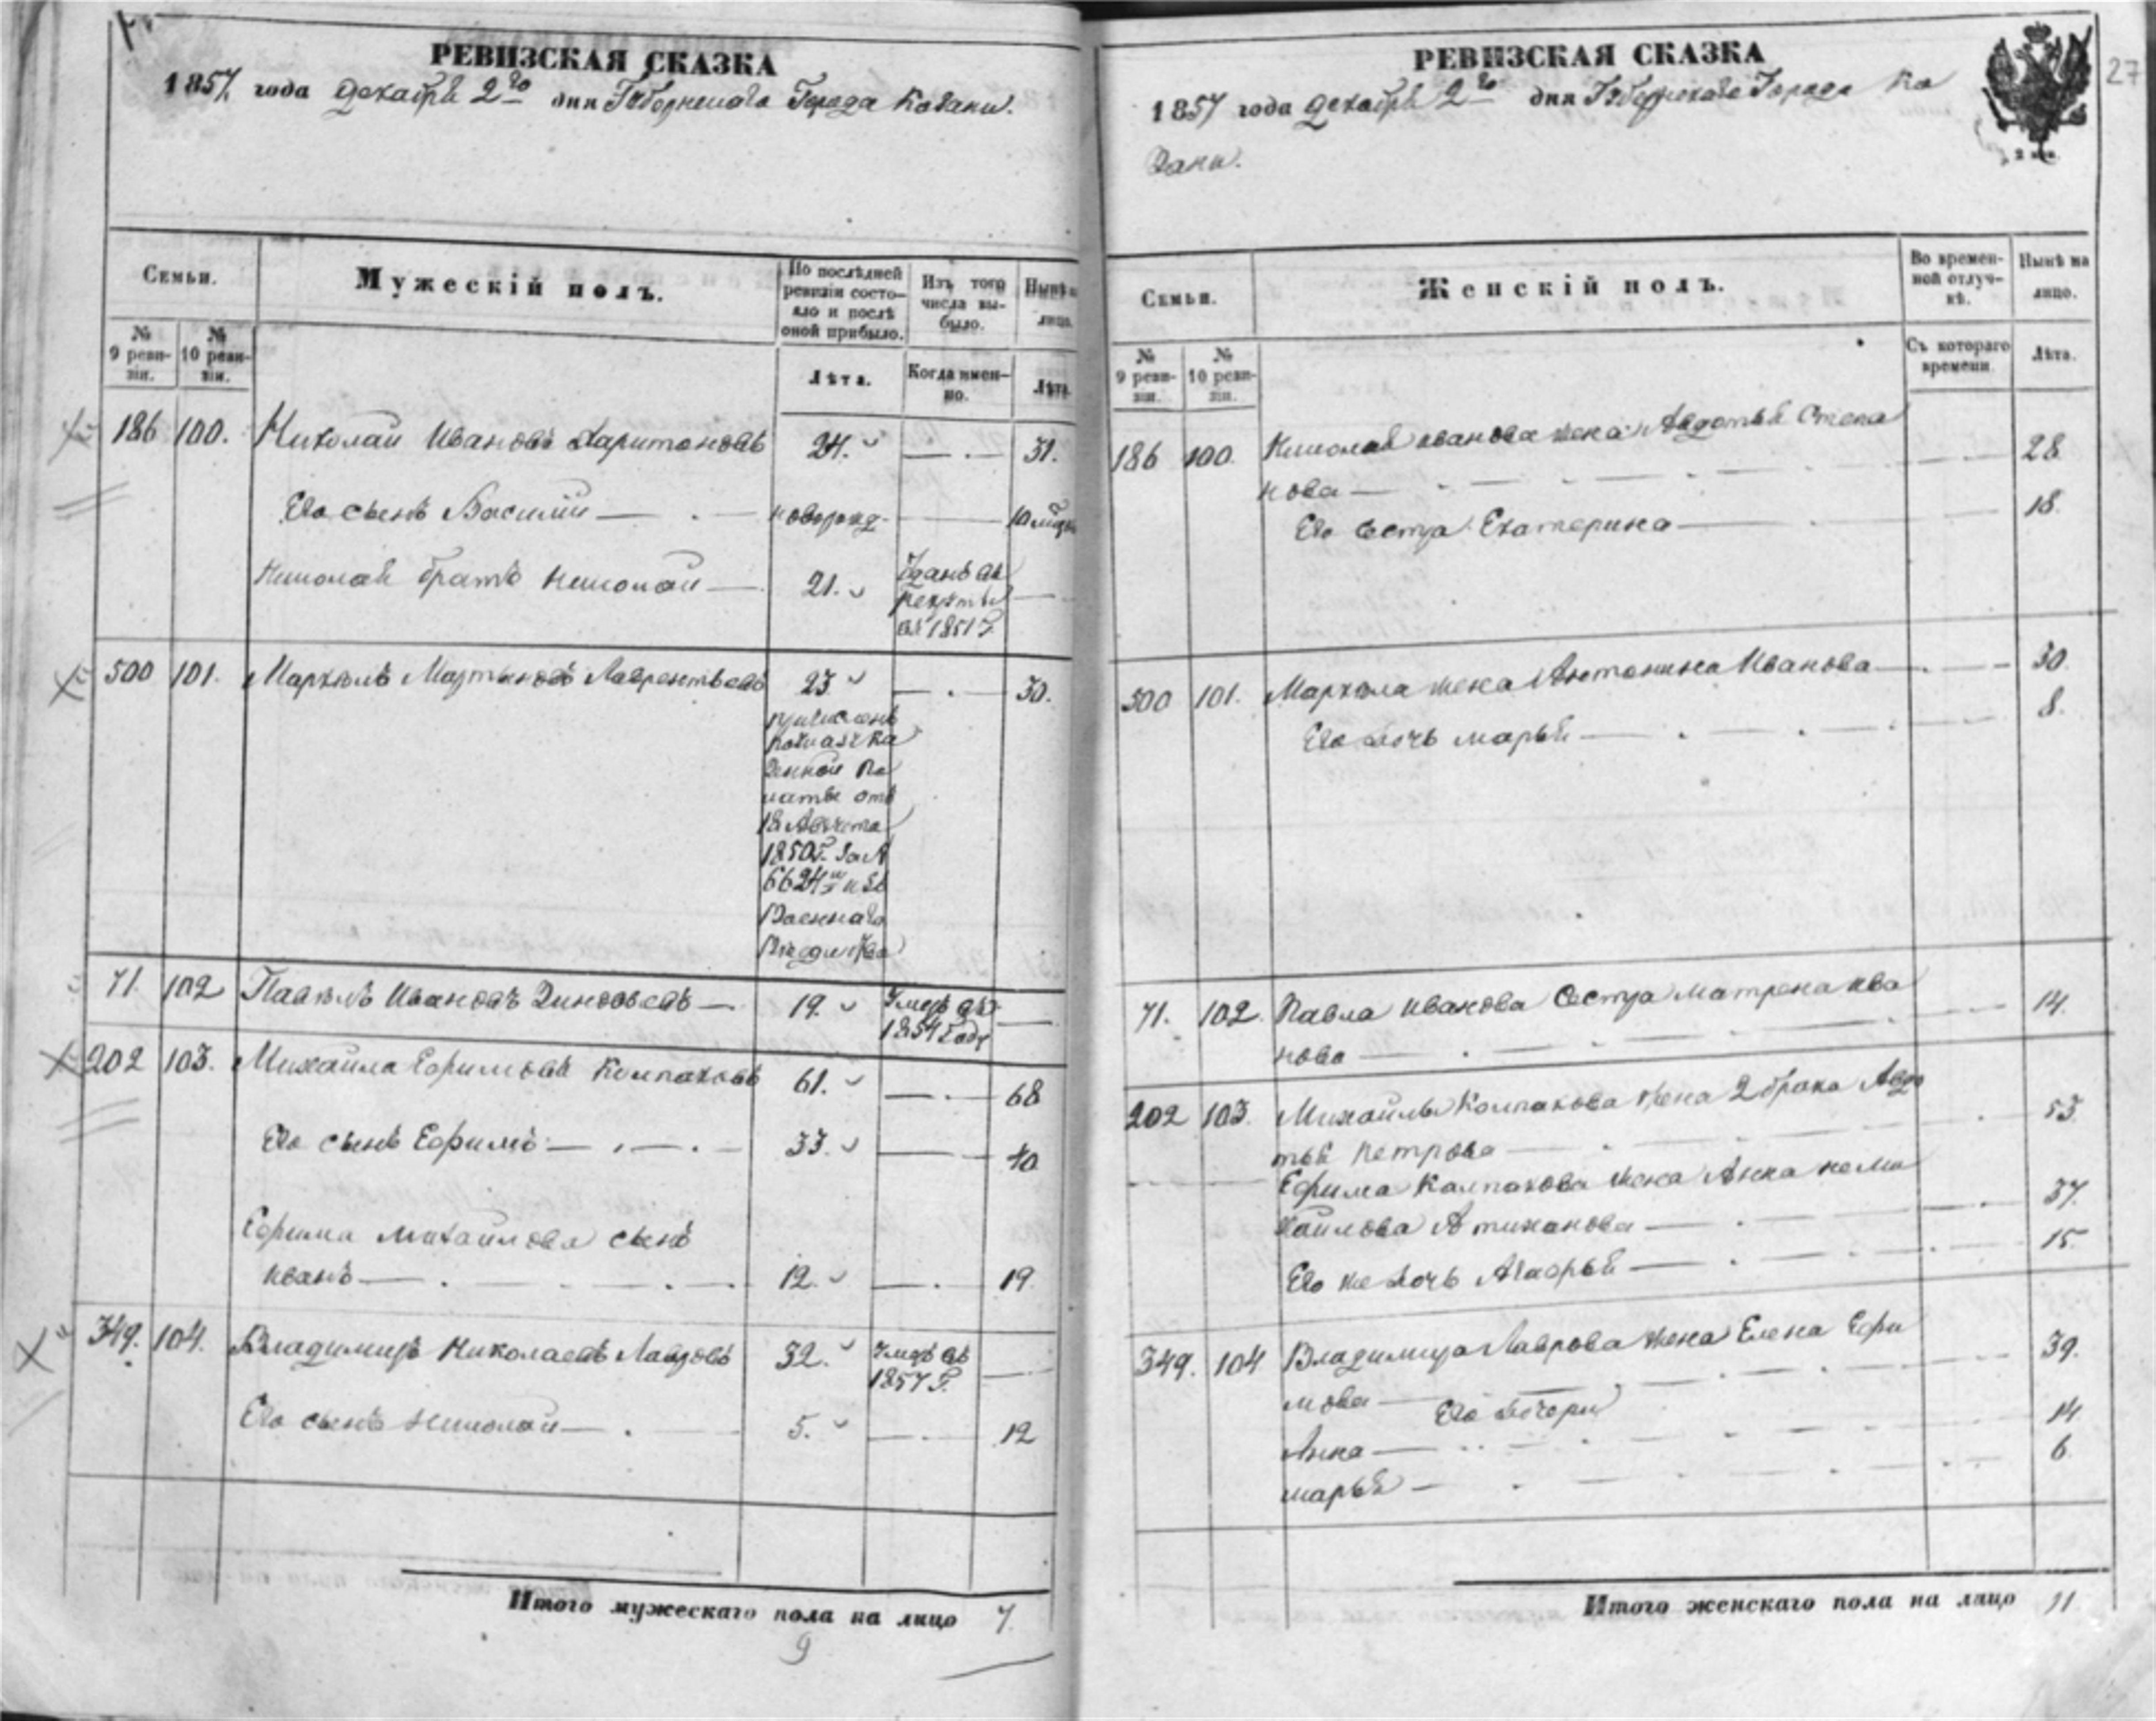 РЕВИЗСКАЯ СКАЗКА
1857 года декабря 2го дня Губернскаго Города Казани.
Семьи.
Мужескій полъ.
По послѣдней
ревизіи состо-
яло и послѣ
оной прибыло.
Изъ того
числа вы-
было.
Нынѣ на
лицо.
№
9 реви-
зіи.
№
10 реви-
зіи.
Лѣта.
Когда имен-
но.
Лѣта.
186 100. Николай Ивановъ Харитоновъ 24. 31.
Его сынъ Василій новорожд.
Николая братъ Николай 21. Зданъ въ
рекруты
въ 1851 г.
500 101. Мартынъ Лаврентьевъ 23 30.
причисленъ
Казен
ной Па
латы отъ
18 Августа
1850 г. за №
6624 изъ
Военнаго
71. 102 Павелъ Ивановъ 19. Умеръ въ
1854 году
202 103. Михаила Ефимовъ Колпаковъ 61. 68
Его сынъ Ефимъ 33. 40
Ефима Михайлова сынъ
Иванъ 12. 19.
349. 104. Владимиръ Николаевъ Лавровъ 32. Умеръ въ
1857 г.
Его сынъ Николай 5. 12
Итого мужескаго пола на лицо 7.
9
РЕВИЗСКАЯ СКАЗКА
27
1857 года декабря 2го дня Губернскаго Города Ка
зани.
Семьи.
Женскій полъ.
Во времен-
ной отлуч-
кѣ.
Нынѣ на
лицо.
№
9 реви-
зіи.
№
10 реви-
зіи.
Съ котораго
времени.
Лѣта.
186 100. Николая Иванова жена Авдотья Степа
нова 28
Его сестра Екатерина 18.
500 101. жена Антонина Иванова 30.
Его дочь Марья 8.
71. 102. Павла Иванова Сестра Матрена Ива
нова 14.
202 103. Михайлы Колпакова жена 2 брака Авдо
тья Петрова 53.
Ефима Колпакова жена Анна
хайлова 37.
Его же дочь 15.
349. 104 Владимира Лаврова жена Елена Ефи
мова 39.
Его дочери
Анна 14.
Марья 6.
Итого женскаго пола на лицо 11